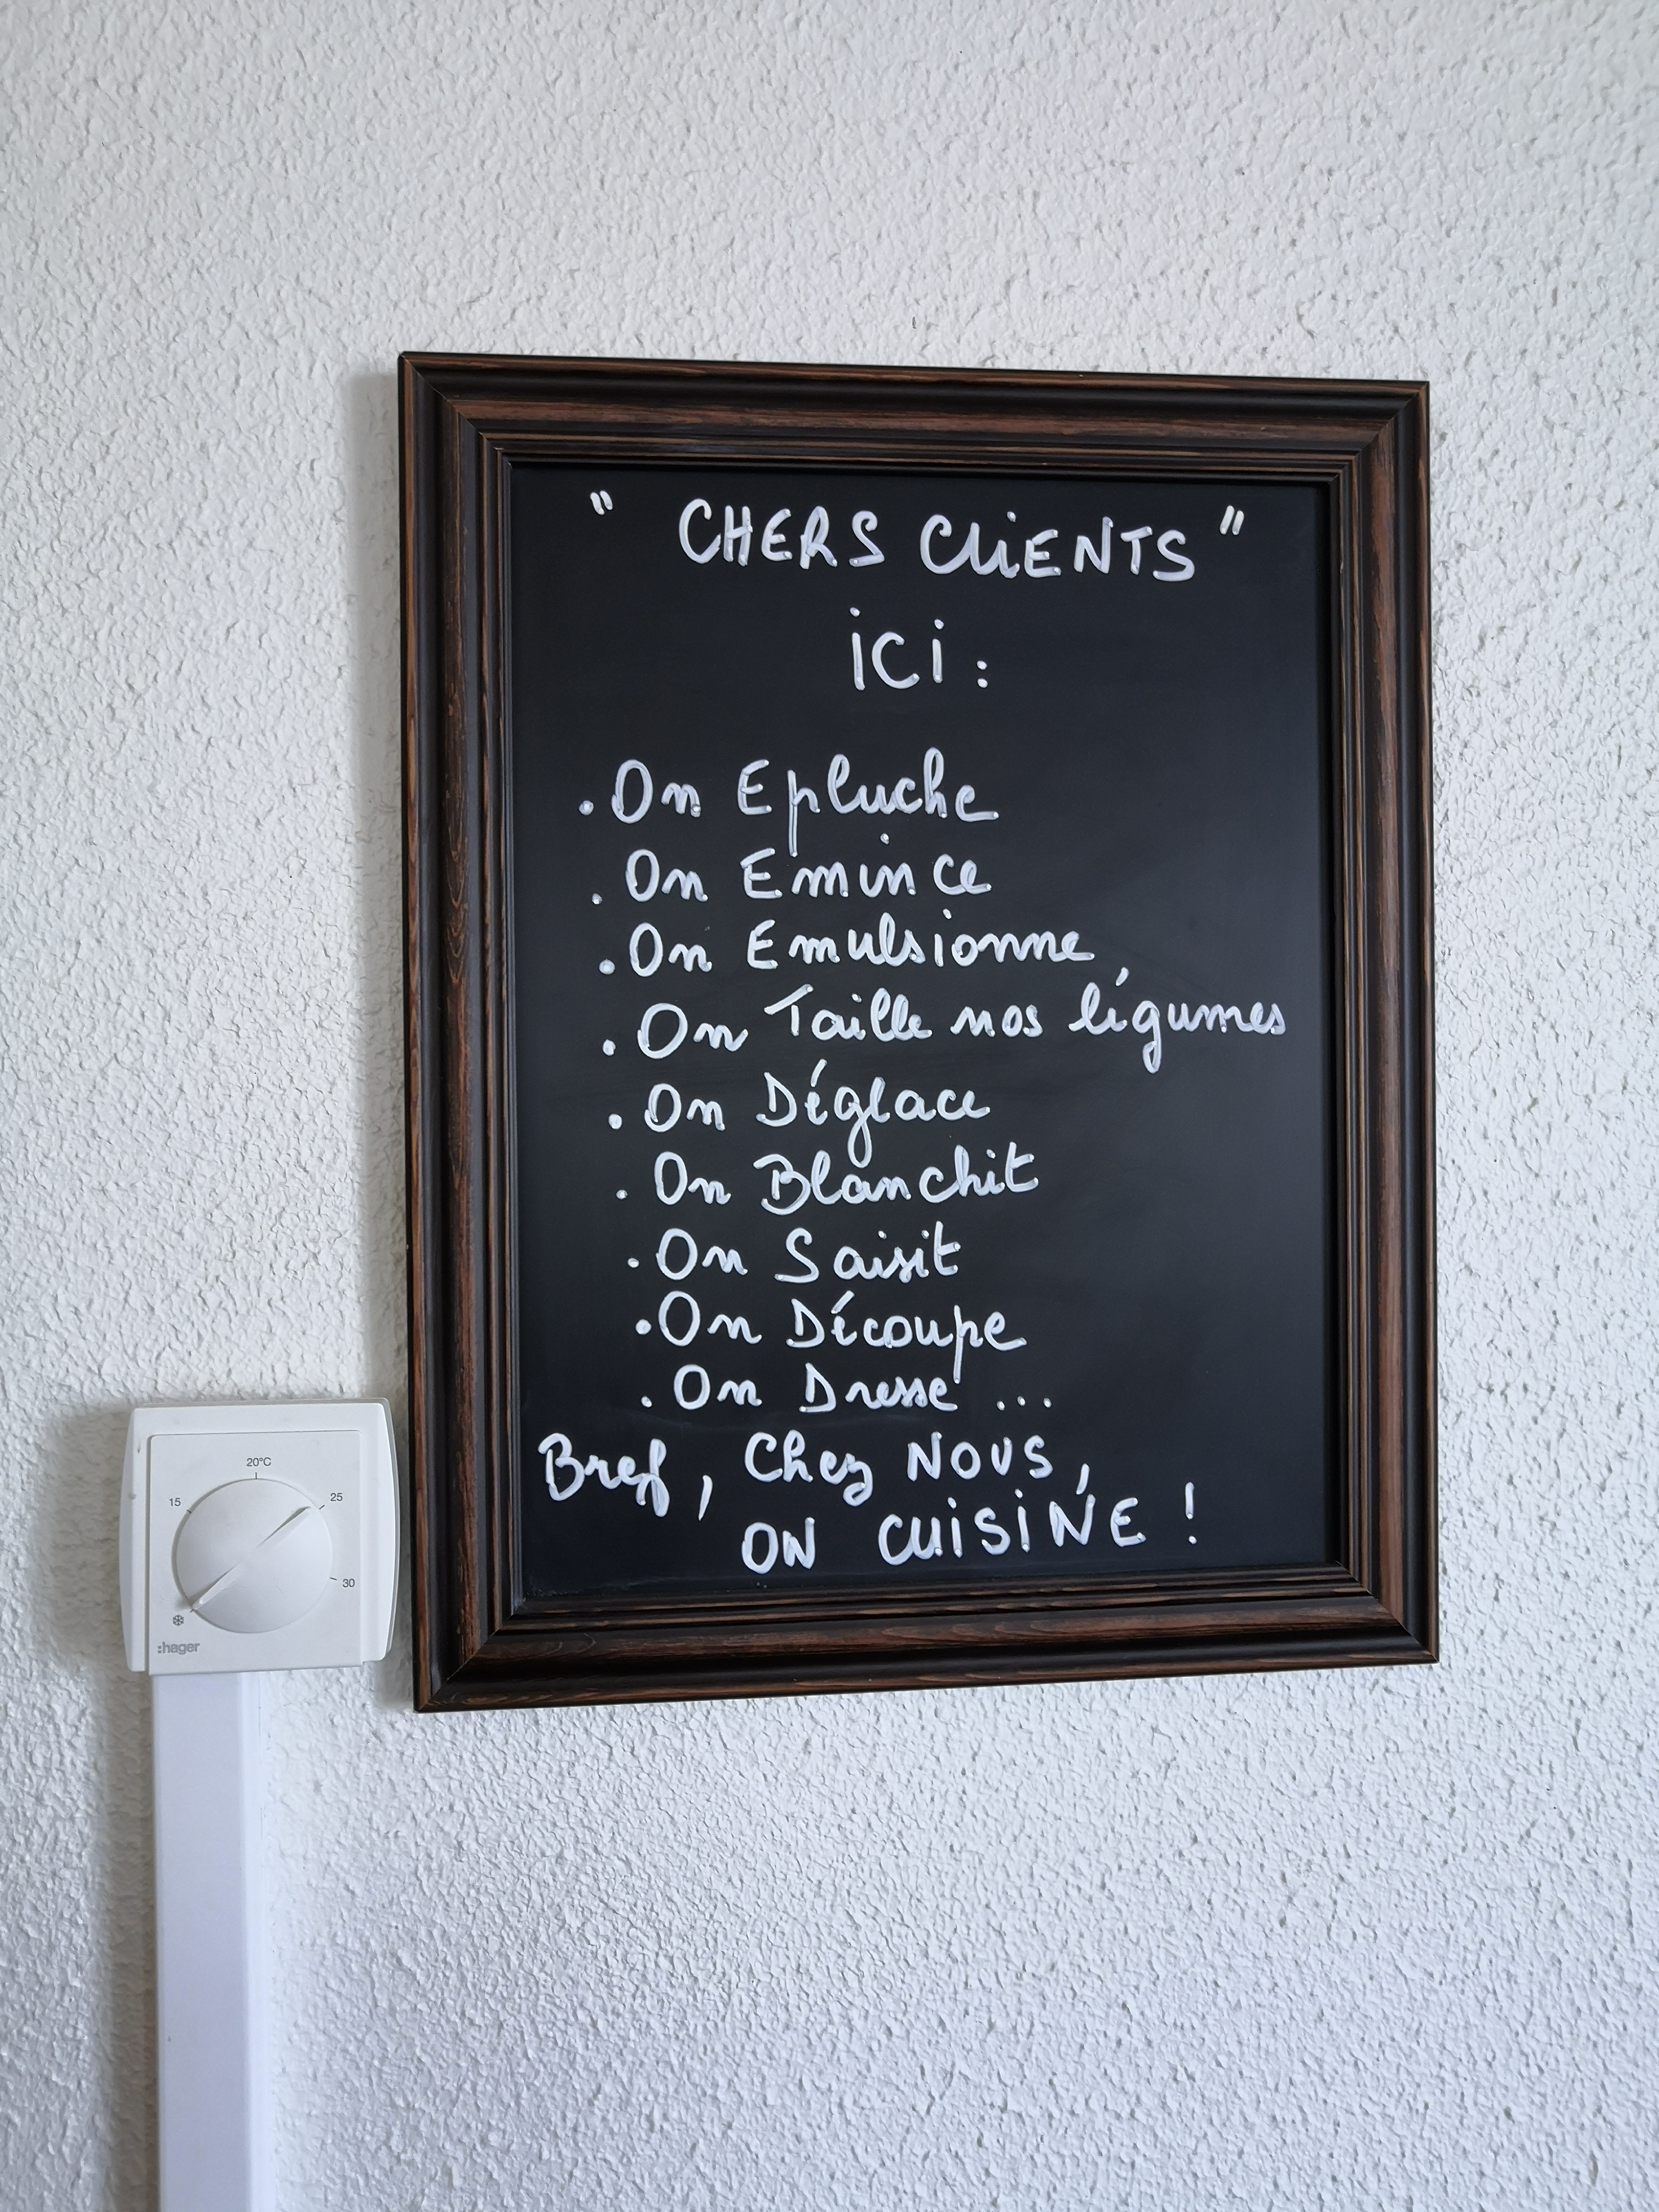 " CHERS CLiENTS "
iCi :
. On Epluche
. On Emince
. On Emulsionne
. On Taille nos légumes
. On Déglace
. On Blanchit
. On Saisit
. On Découpe
. On Dresse ...
Bref, Chez NOUS,
ON CUiSiNE !
20°C
15
25
30
:hager